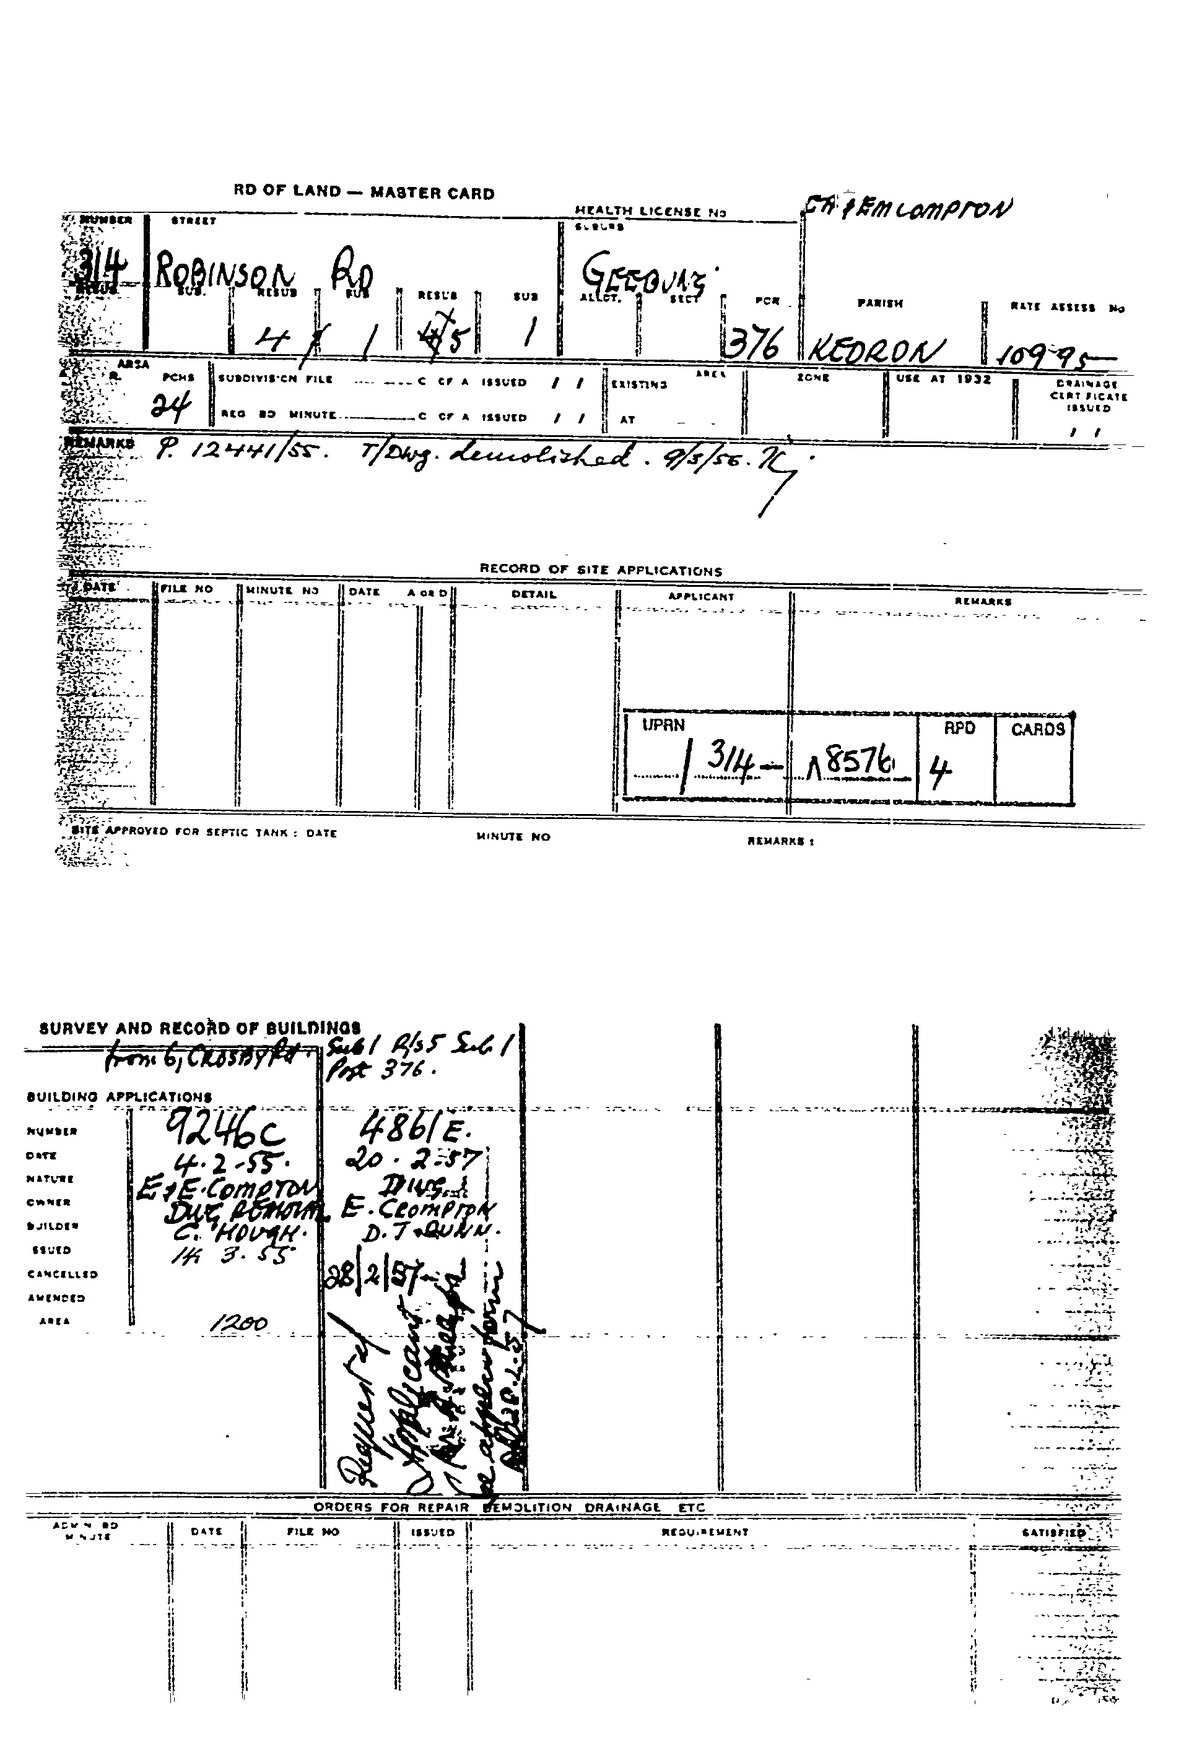 RD OF LAND — MASTER CARD
HEALTH LICENSE No
& EM COMPTON
NUMBER STREET SUBURB
314 ROBINSON RD GEEBUNG
RESUB SUB. RESUB SUB RESUB SUB ALLOT. SECT POR PARISH RATE ASSESS No
4 / 1 5 1 376 KEDRON 10995
AREA
R. PCHS SUBDIVIS'ON FILE C OF A ISSUED / / EXISTING AREA ZONE USE AT 1932 DRAINAGE CERTIFICATE ISSUED
24 REG BD MINUTE C OF A ISSUED / / AT / /
REMARKS P. 12441/55. T/Dwg. demolished. 9/5/56.
RECORD OF SITE APPLICATIONS
DATE FILE NO MINUTE NO DATE A OR D DETAIL APPLICANT REMARKS
UPRN RPD CARDS
/ 314 — 18576 4
SITE APPROVED FOR SEPTIC TANK : DATE MINUTE NO REMARKS :
SURVEY AND RECORD OF BUILDINGS
from 6, CROSBY Rd. Sub 1 R/s 5 Sub 1
Port 376.
BUILDING APPLICATIONS
NUMBER 9246C 4861E.
DATE 4.2.55. 20.2.57
NATURE E & E. COMPTON Dwg.
OWNER DWG REMOVAL E. COMPTON
BUILDER C. HOUGH. D. T. DUNN.
ISSUED 14.3.55
CANCELLED 28/2/57
AMENDED
AREA 1200
Request of
Applicant
see appln form
28.2.57
ORDERS FOR REPAIR DEMOLITION DRAINAGE ETC
ADMIN BD MINUTE DATE FILE NO ISSUED REQUIREMENT SATISFIED